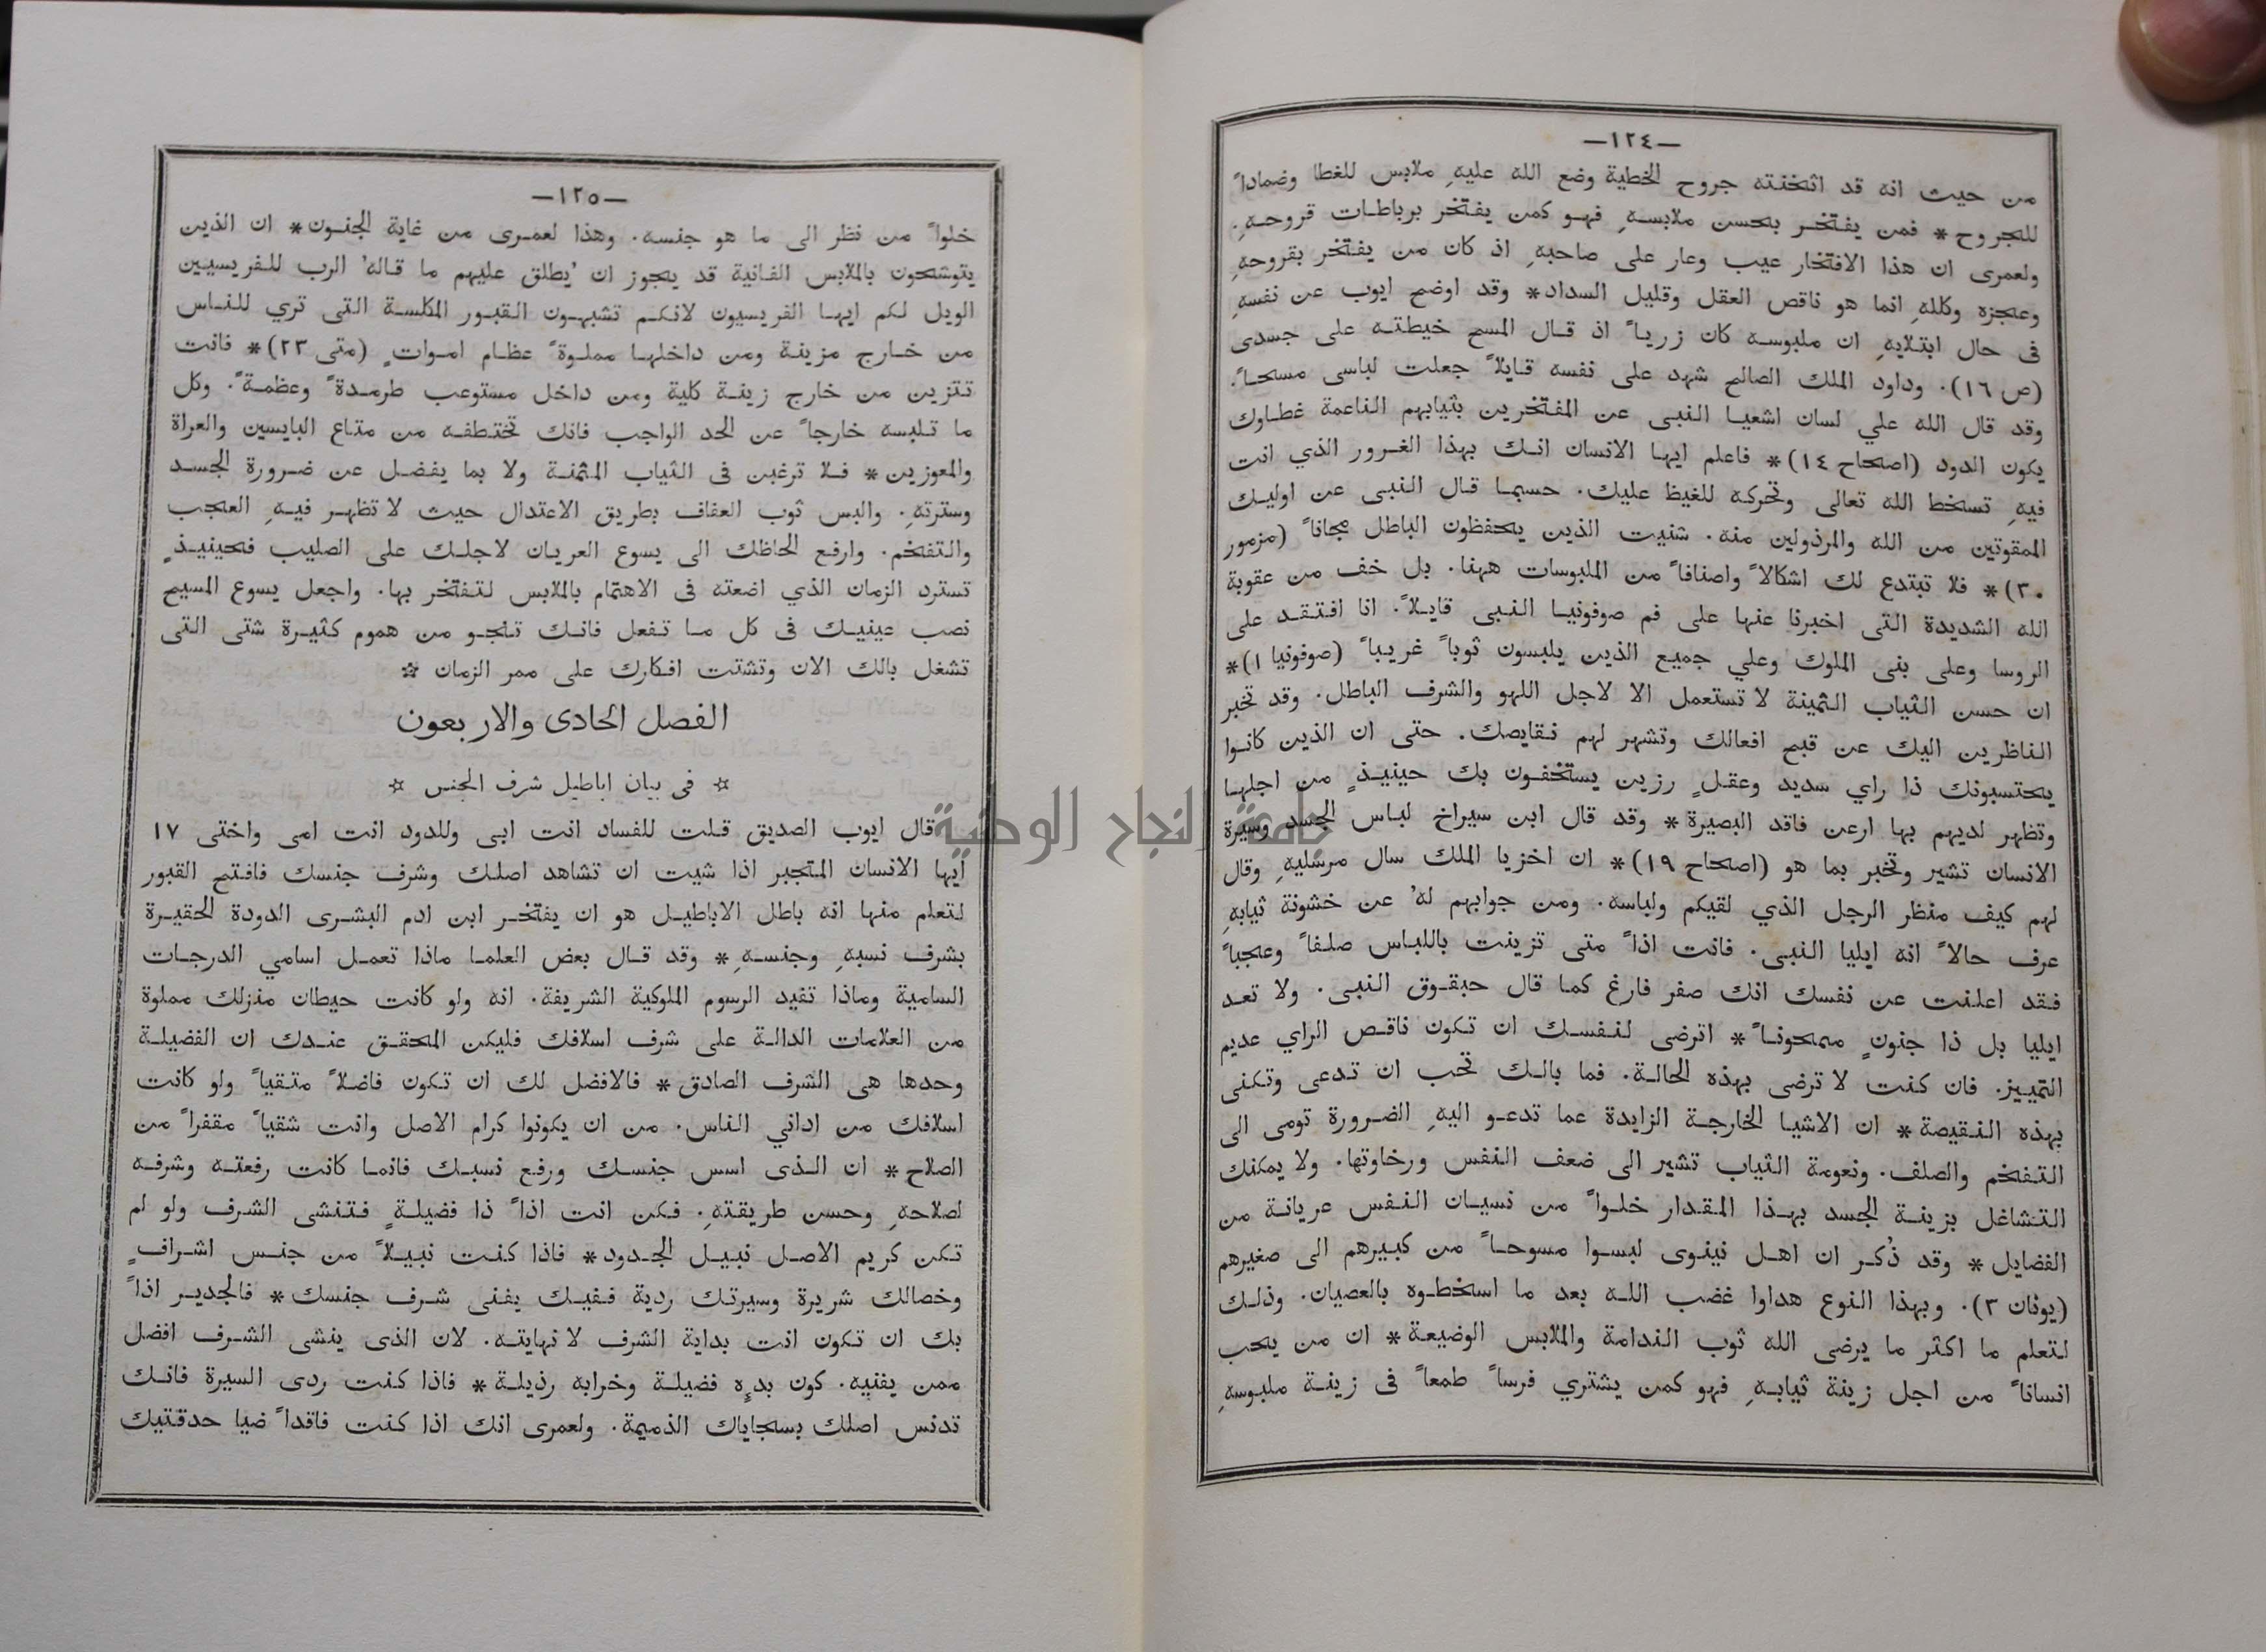 —١٢٤—
من حيث انه قد اثخنته جروح الخطية وضع الله عليهِ ملابس للغطا وضماداً
للجروح * فمن يفتخر بحسن ملابسهِ فهو كمن يفتخر برباطات قروحهِ.
ولعمرى ان هذا الافتخار عيب وعار على صاحبهِ اذ كان من يفتخر بقروحهِ
وعجزه وكللهِ انما هو ناقص العقل وقليل السداد* وقد اوضح ايوب عن نفسهِ
فى حال ابتلايهِ ان ملبوسه كان زرياً اذ قال المسح خيطته على جسدى
(ص ١٦). وداود الملك الصالح شهد على نفسه قايلاً جعلت لباسى مسحاً.
وقد قال الله علي لسان اشعيا النبى عن المفتخرين بثيابهم الناعمة غطاوك
يكون الدود (اصحاح ١٤)* فاعلم ايها الانسان انك بهذا الغرور الذي انت
فيهِ تسخط الله تعالى وتحركه للغيظ عليك. حسبما قال النبى عن اوليك
الممقوتين من الله والمرذولين منه. شنيت الذين يحفظون الباطل مجاناً (مزمور
٣٠)* فلا تبتدع لك اشكالاً واصنافاً من الملبوسات ههنا. بل خف من عقوبة
الله الشديدة التى اخبرنا عنها على فم صوفونيا النبى قايلاً. انا افتقد على
الروسا وعلى بنى الملوك وعلي جميع الذين يلبسون ثوباً غريباً (صوفونيا ١)*
ان حسن الثياب الثمينة لا تستعمل الا لاجل اللهو والشرف الباطل. وقد تخبر
الناظرين اليك عن قبح افعالك وتشهر لهم نقايصك. حتى ان الذين كانوا
يحتسبونك ذا راي سديد وعقلٍ رزين يستخفون بك حينيذٍ من اجلها
وتظهر لديهم بها ارعن فاقد البصيرة* وقد قال ابن سيراخ لباس الجسد وسيرة
الانسان تشير وتخبر بما هو (اصحاح ١٩)* ان اخزيا الملك سال مرسليهِ وقال
لهم كيف منظر الرجل الذي لقيكم ولباسه. ومن جوابهم لهُ عن خشونة ثيابهِ
عرف حالاً انه ايليا النبى. فانت اذاً متى تزينت باللباس صلفاً وعجباً
فقد اعلنت عن نفسك انك صفر فارغ كما قال حبقوق النبى. ولا تعد
ايليا بل ذا جنونٍ ممحوناً* اترضى لنفسك ان تكون ناقص الراي عديم
التمييز. فان كنت لا ترضى بهذه الحالة. فما بالك تحب ان تدعى وتكنى
بهذه النقيصة* ان الاشيا الخارجة الزايدة عما تدعو اليهِ الضرورة تومى الى
التفخم والصلف. ونعومة الثياب تشير الى ضعف النفس ورخاوتها. ولا يمكنك
التشاغل بزينة الجسد بهذا المقدار خلواً من نسيان النفس عريانة من
الفضايل* وقد ذُكر ان اهل نينوى لبسوا مسوحاً من كبيرهم الى صغيرهم
(يونان ٣). وبهذا النوع هداوا غضب الله بعد ما اسخطوه بالعصيان. وذلك
لتعلم ما اكثر ما يرضى الله ثوب الندامة والملابس الوضيعة* ان من يحب
انساناً من اجل زينة ثيابهِ فهو كمن يشتري فرساً طمعاً فى زينة ملبوسهِ
—١٢٥—
خلواً من نظر الى ما هو جنسه. وهذا لعمرى من غاية الجنون* ان الذين
يتوشحون بالملابس الفانية قد يجوز ان يُطلق عليهم ما قالهُ الرب للفريسيين
الويل لكم ايها الفريسيون لانكم تشبهون القبور المكلسة التى تري للناس
من خارج مزينة ومن داخلها مملوةً عظام امواتٍ (متى ٢٣)* فانت
تتزين من خارج زينة كلية ومن داخل مستوعب طرمدةً وعظمةً. وكل
ما تلبسه خارجاً عن الحد الواجب فانك تختطفه من متاع البايسين والعراة
والمعوزين* فلا ترغبن فى الثياب المثمنة ولا بما يفضل عن ضرورة الجسد
وسترتهِ. والبس ثوب العفاف بطريق الاعتدال حيث لا تظهر فيهِ العجب
والتفخم. وارفع الحاظك الى يسوع العريان لاجلك على الصليب فحينيذٍ
تسترد الزمان الذي اضعته فى الاهتمام بالملابس لتفتخر بها. واجعل يسوع المسيح
نصب عينيك فى كل ما تفعل فانك تنجو من هموم كثيرة شتى التى
تشغل بالك الان وتشتت افكارك على ممر الزمان ☆
الفصل الحادى والاربعون
☆ فى بيان اباطيل شرف الجنس ☆
قال ايوب الصديق قلت للفساد انت ابى وللدود انت امى واختى ١٧
ايها الانسان المتجبر اذا شيت ان تشاهد اصلك وشرف جنسك فافتح القبور
لتعلم منها انه باطل الاباطيل هو ان يفتخر ابن ادم البشرى الدودة الحقيرة
بشرف نسبهِ وجنسهِ* وقد قال بعض العلما ماذا تعمل اسامي الدرجات
السامية وماذا تفيد الرسوم الملوكية الشريفة. انه ولو كانت حيطان منزلك مملوة
من العلامات الدالة على شرف اسلافك فليكن المحقق عندك ان الفضيلة
وحدها هى الشرف الصادق* فالافضل لك ان تكون فاضلاً متقياً ولو كانت
اسلافك من اداني الناس. من ان يكونوا كرام الاصل وانت شقياً مقفراً من
الصلاح* ان الذى اسس جنسك ورفع نسبك فانما كانت رفعته وشرفه
لصلاحهِ وحسن طريقتهِ. فكن انت اذاً ذا فضيلةٍ فتنشى الشرف ولو لم
تكن كريم الاصل نبيل الجدود* فاذا كنت نبيلاً من جنس اشرافٍ
وخصالك شريرة وسيرتك ردية ففيك يفنى شرف جنسك* فالجدير اذاً
بك ان تكون انت بداية الشرف لا نهايته. لان الذى ينشى الشرف افضل
ممن يفنيه. كون بدءِه فضيلة وخرابه رذيلة* فاذا كنت ردى السيرة فانك
تدنس اصلك بسجاياك الذميمة. ولعمرى انك اذا كنت فاقداً ضيا حدقتيك
جامعة النجاح الوطنية